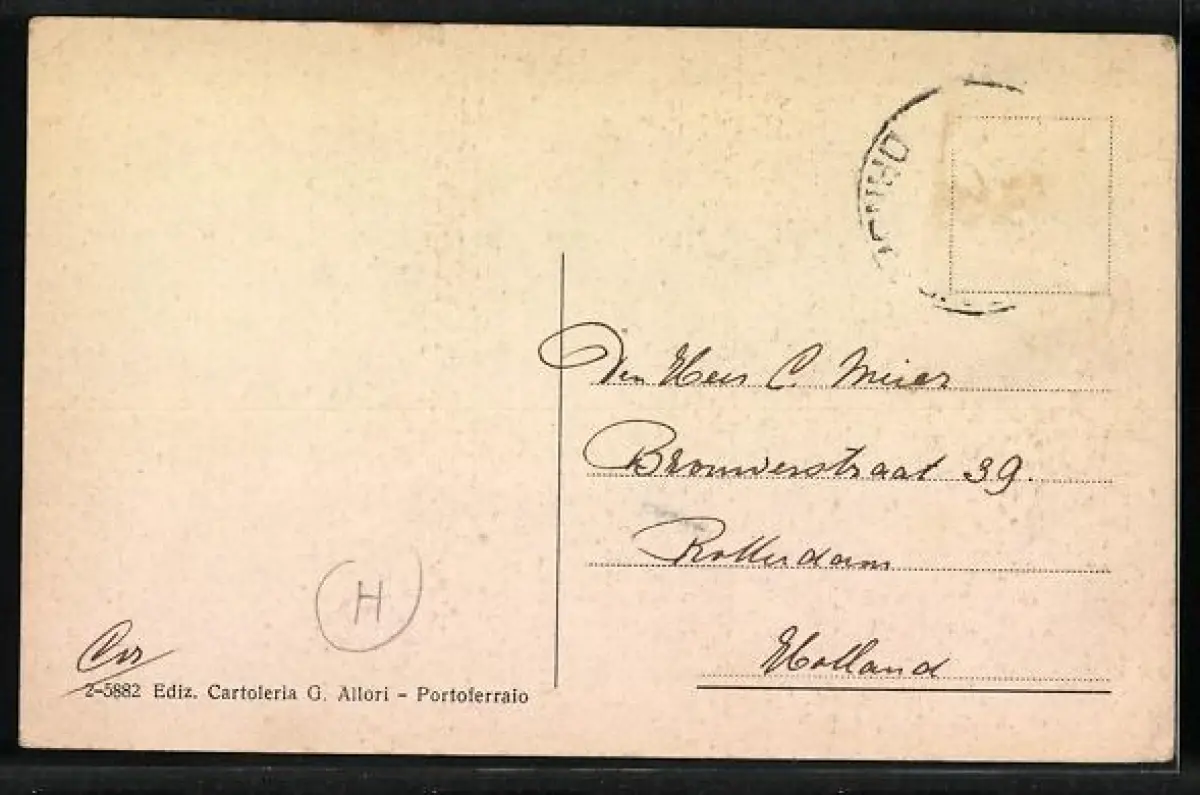 Den Heer C. Meier
Brouwerstraat 39.
Rotterdam
Holland
H
Cor
2-5882 Ediz. Cartoleria G. Allori - Portoferraio